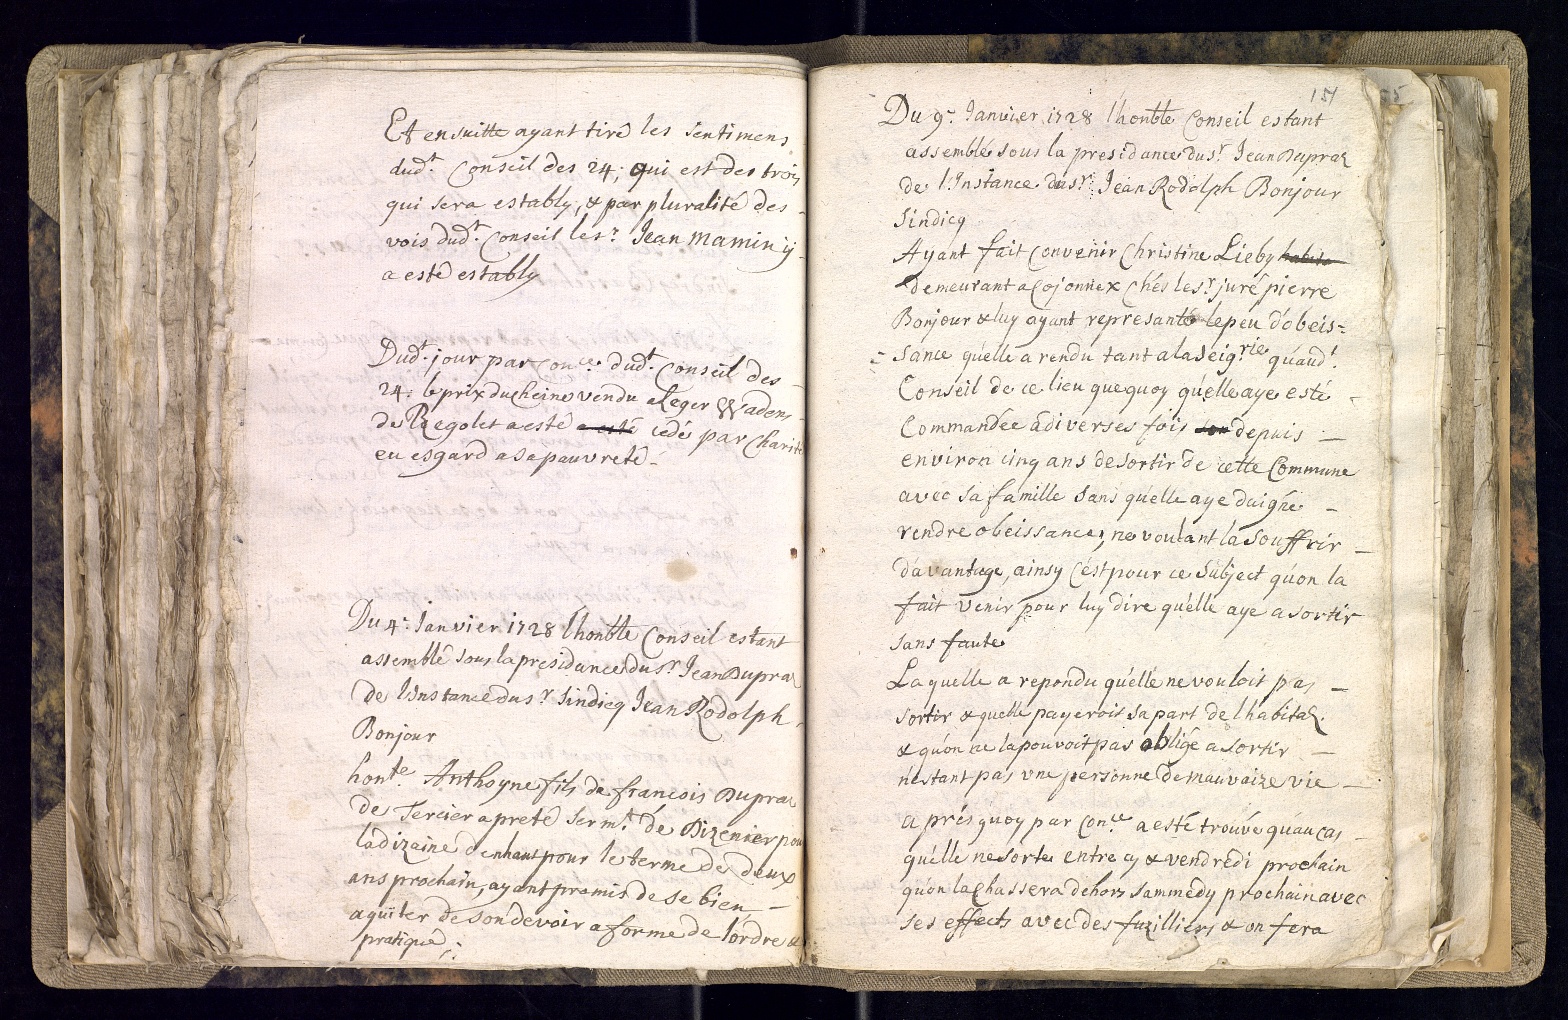 Et ensuitte ayant tiré les sentimens
dud.t Conseil des 24; qui est des trois
qui sera estably, & par pluralité des
vois dud.t Conseil le s.r Jean Mamin ÿ
a esté estably
Dud.t jour par Con.ce dud.t Conseil des
24: le prix du cheine vendu a Leger Wadens
de Regolet a esté a esté cédé par Charité
eu esgard a sa pauvreté.
Du 4: Janvier 1728 l'honble Conseil estant
assemblé sous la presidance du s.r Jean Dupraz
de l'Instance du s.r Sindicq Jean Rodolph
Bonjour
hon.te Anthoyne fils de francois Dupraz
de Tercier a preté serm.t de Dizenier pour
la dizaine d'enhaut pour le terme de deux
ans prochain, ayant promis de se bien
aquiter de son devoir a forme de l'ordre &
pratique;
151
Du 9: Janvier 1728 l'honble Conseil estant
assemblé sous la presidance du s.r Jean Dupraz
de l'Instance du s.r Jean Rodolph Bonjour
Sindicq
Ayant fait convenir Christine Lieby habita
demeurant a Cojonnex chés le s.r juré pierre
Bonjour & luy ayant representé le peu d'obeis=
=sance qu'elle a rendu tant a la Seig.rie qu'aud.t
Conseil de ce lieu que quoy qu'elle aye esté
Commandée a diverses fois depuis
environ cinq ans de sortir de cette Commune
avec sa famille sans qu'elle aye daigné
rendre obeissance, ne voulant la souffrir
d'avantage, ainsy c'est pour ce subject qu'on la
fait venir pour luy dire qu'elle aye a sortir
sans faute
Laquelle a repondu qu'elle ne vouloit pas
sortir & quelle payerois sa part de l'habitaõ.
& qu'on ne la pouvoit pas obligé a sortir
n'estant pas une personne de mauvaize vie
après quoy par Con.ce a esté trouvé qu'au cas
qu'elle ne sorte entre cy & vendredi prochain
qu'on la chassera dehors sammedy prochain avec
ses effects avec des fuzilliers & on fera